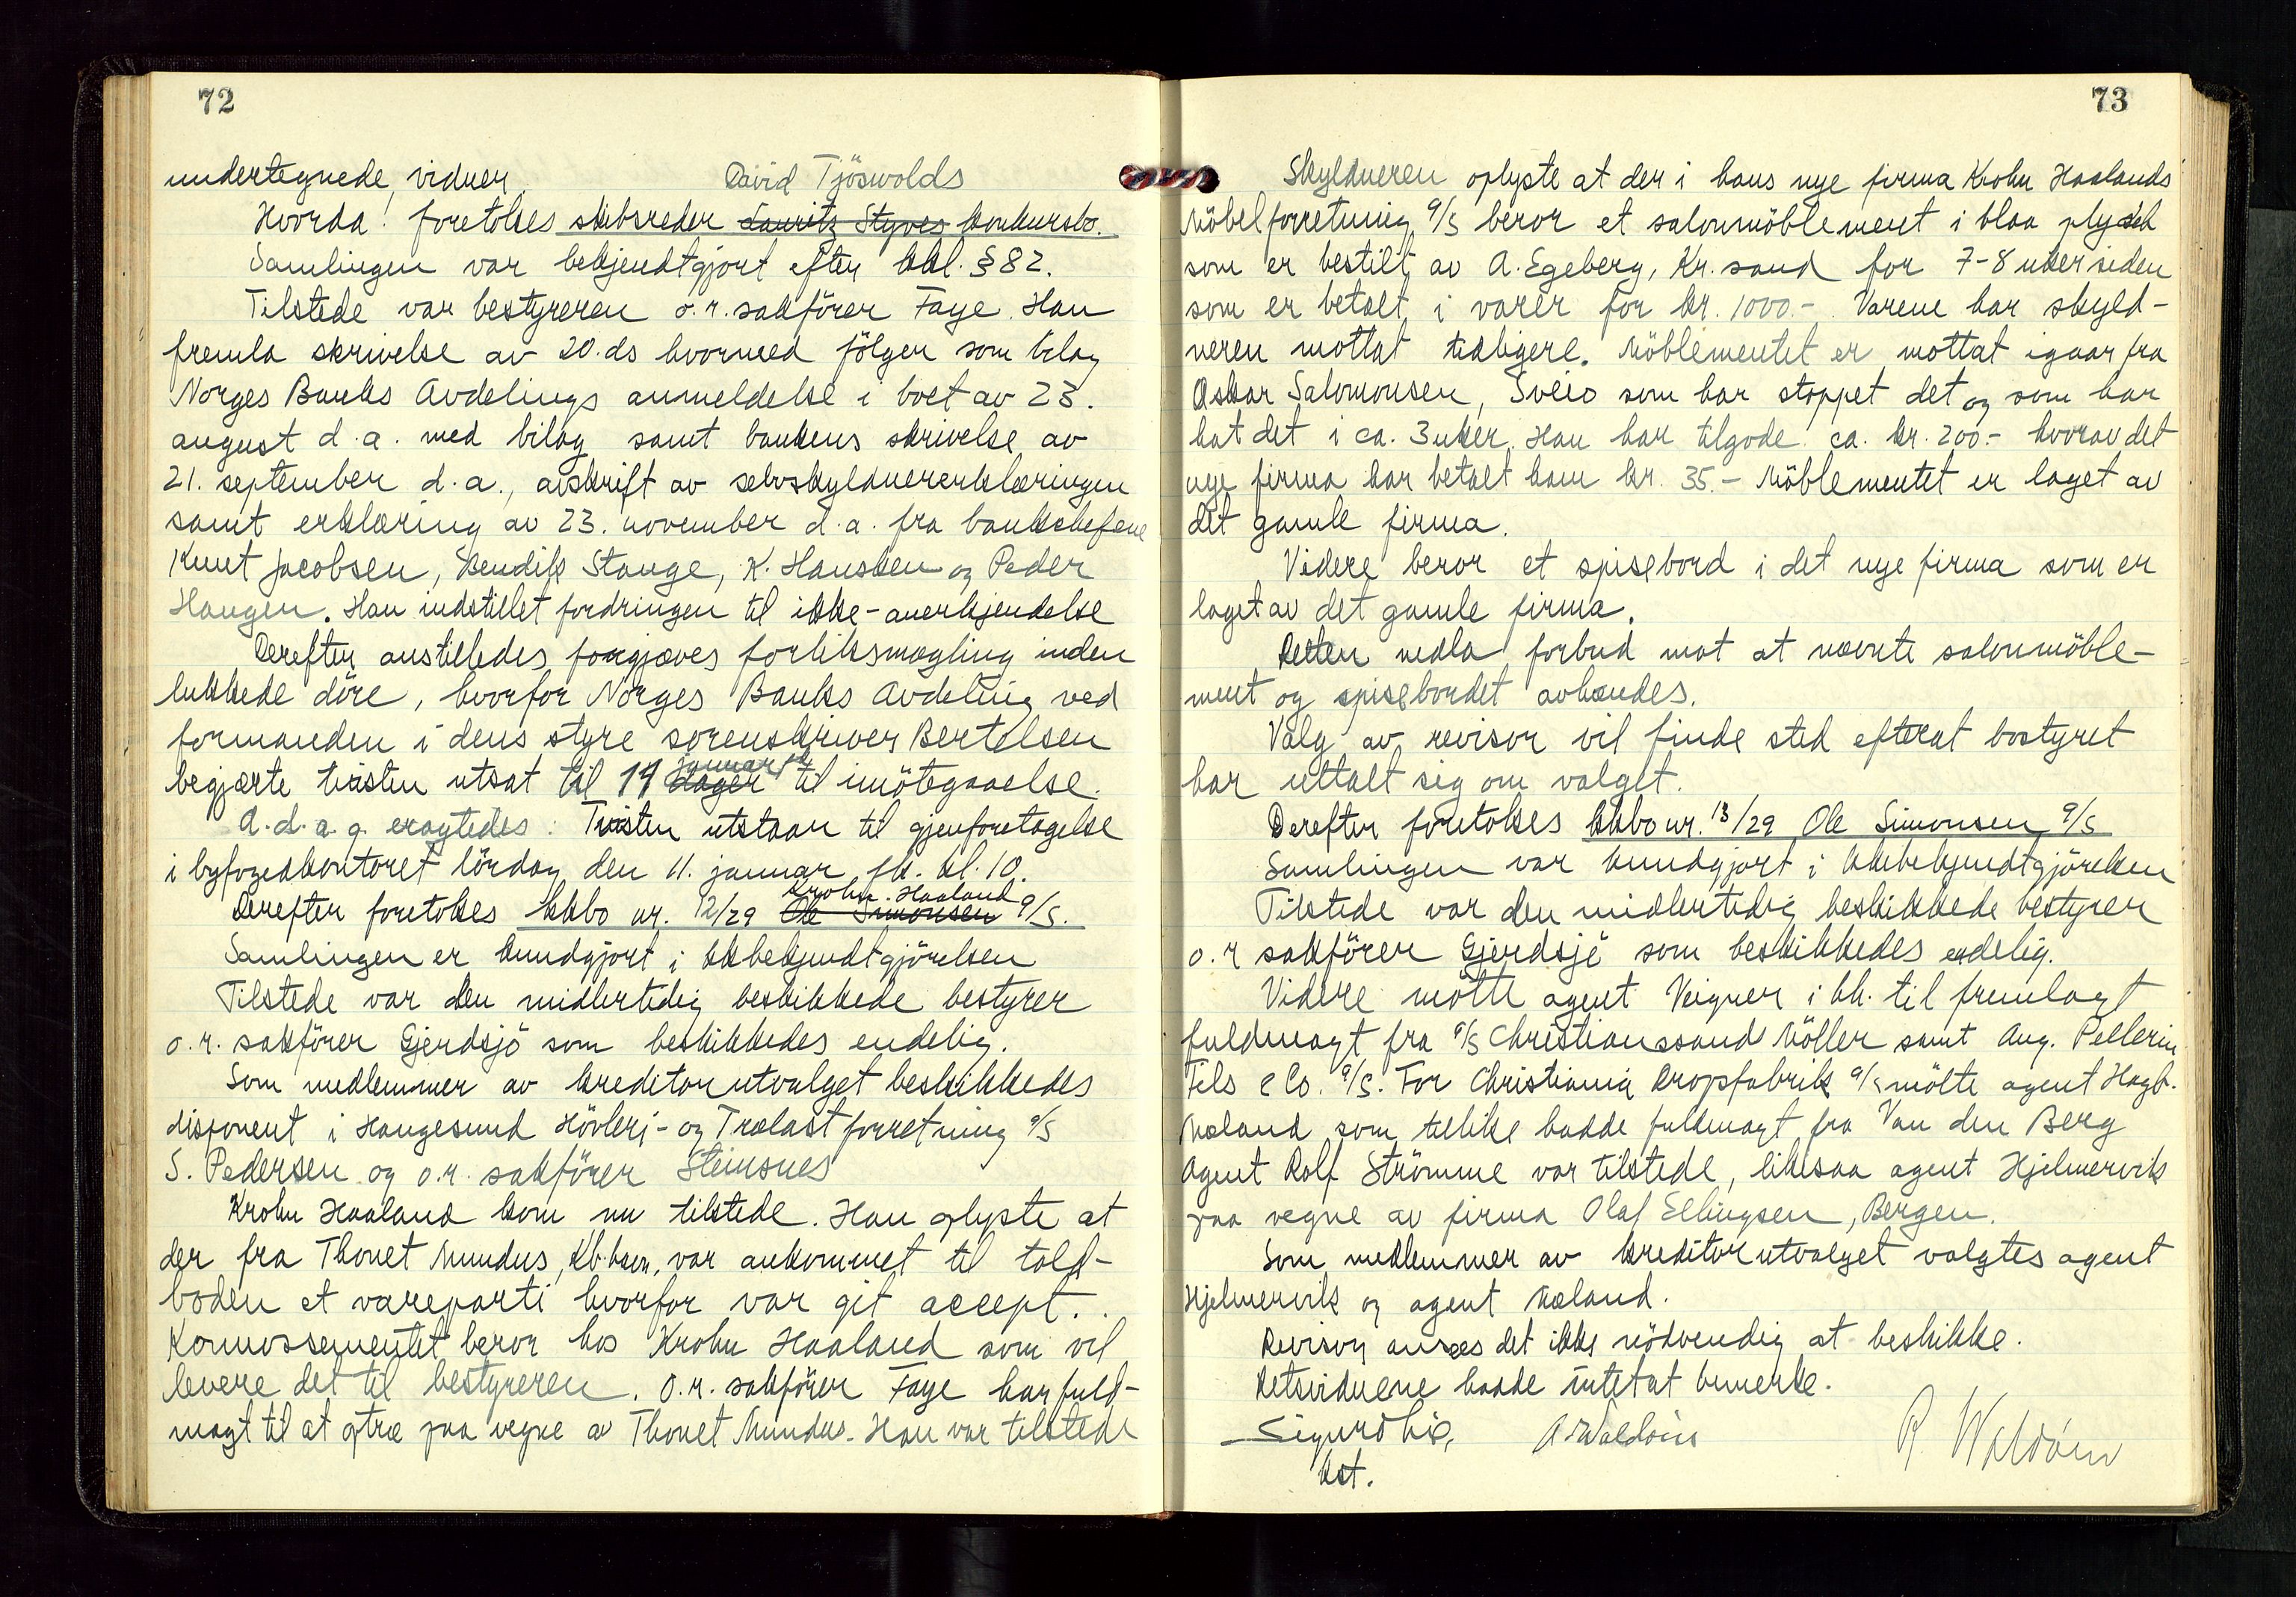 72
undertegnede vidner.
David Tjöswolds
Hvorda: foretokes skibsreder ~~Lauritz Styves~~ konkursbo.
Samlingen var bekjendtgjort efter kkl. § 82.
Tilstede var bestyreren o.r. sakförer Faye. Han
fremla skrivelse av 20. ds hvormed fölger som bilag
Norges Banks Avdelings anmeldelse i boet av 23.
august d.a. med bilag samt bankens skrivelse av
21. september d.a., avskrift av selvskyldnererklæringen
samt erklæring av 23. november d.a. fra bankchefene
Knut Jacobsen, Bendik Stange, K. Hansken og Peder
Haugen. Han indstillet fordringen til ikke-anerkjendelse
Derefter anstilledes forgjæves forliksmægling inden
lukkede döre, hvorfor Norges Banks Avdeling ved
formanden i dens styre sorenskriver Bertelsen
begjærte tvisten utsat til 11 ~~dager~~ januar fk til imötegaaelse.
A.d.a.g. eragtedes: Tvisten utstaar til gjenforetagelse
i byfogedkontoret lördag den 11. januar fk. kl. 10.
Derefter foretokes kkbo nr. 12/29 ~~Ole Simonsen~~ Krohn Haaland a/s.
Samlingen er kundgjort i kkbekjendtgjörelsen
Tilstede var den midlertidig beskikkede bestyrer
o.r. sakförer Gjerdsjö som beskikkedes endelig.
Som medlemmer av kreditorutvalget beskikkedes
disponent i Haugesund Hövleri- og Trælastforretning a/s
S. Pedersen og o.r. sakförer Steinsnes
Krohn Haaland kom nu tilstede. Han oplyste at
der fra Thonet Mundus, Kb.havn, var ankommet til told-
boden et vareparti hvorfor var git accept.
Konnossementet beror hos Krohn Haaland som vil
levere det til bestyreren. O.r. sakförer Faye har fuld-
magt til at optræ paa vegne av Thonet Mundus. Han var tilstede
73
Skyldneren oplyste at der i hans nye firma Krohn Haalands
Möbelforretning a/s beror et salonmöblement i blaa plysch
som er bestilt av A. Egeberg, Kr.sand for 7-8 uker siden
som er betalt i varer for kr. 1000.- Varene har skyld-
neren mottat tidligere. Möblementet er mottat igaar fra
Oskar Salomonsen, Sveio som har stoppet det og som har
hat det i ca. 3 uker. Han har tilgode ca. kr. 200.- hvorav det
nye firma har betalt ham kr. 35.- Möblementet er laget av
det gamle firma.
Videre beror et spisebord i det nye firma som er
laget av det gamle firma.
Retten nedla forbud mot at nævnte salonmöble-
ment og spisebordet avhændes.
Valg av revisor vil finde sted efterat bostyret
har uttalt sig om valget.
Derefter foretokes kkbo nr. 13/29 Ole Simonsen a/s
Samlingen var kundgjort i kkbekjendtgjörelsen
Tilstede var den midlertidig beskikkede bestyrer
o.r sakförer Gjerdsjö som beskikkedes endelig.
Videre mötte agent Veigner i hh. til fremlagt
fuldmagt fra a/s Christianssand Möller samt Aug. Pellerin
Fils & Co. a/s. For Christiania Dropsfabrik a/s mötte agent Hagb.
Mæland som tillike hadde fuldmagt fra Van den Berg
Agent Rolf Strömme var tilstede, likesaa agent Hjelmervik
paa vegne av firma Olaf Ellingsen, Bergen.
Som medlemmer av kreditorutvalget valgtes agent
Hjelmervik og agent Mæland.
Revisor ansees det ikke nödvendig at beskikke.
Retsvidnene hadde intet at bemerke.
Sigurd Lie,
A. Waldöin
R. Waldöin
kst.